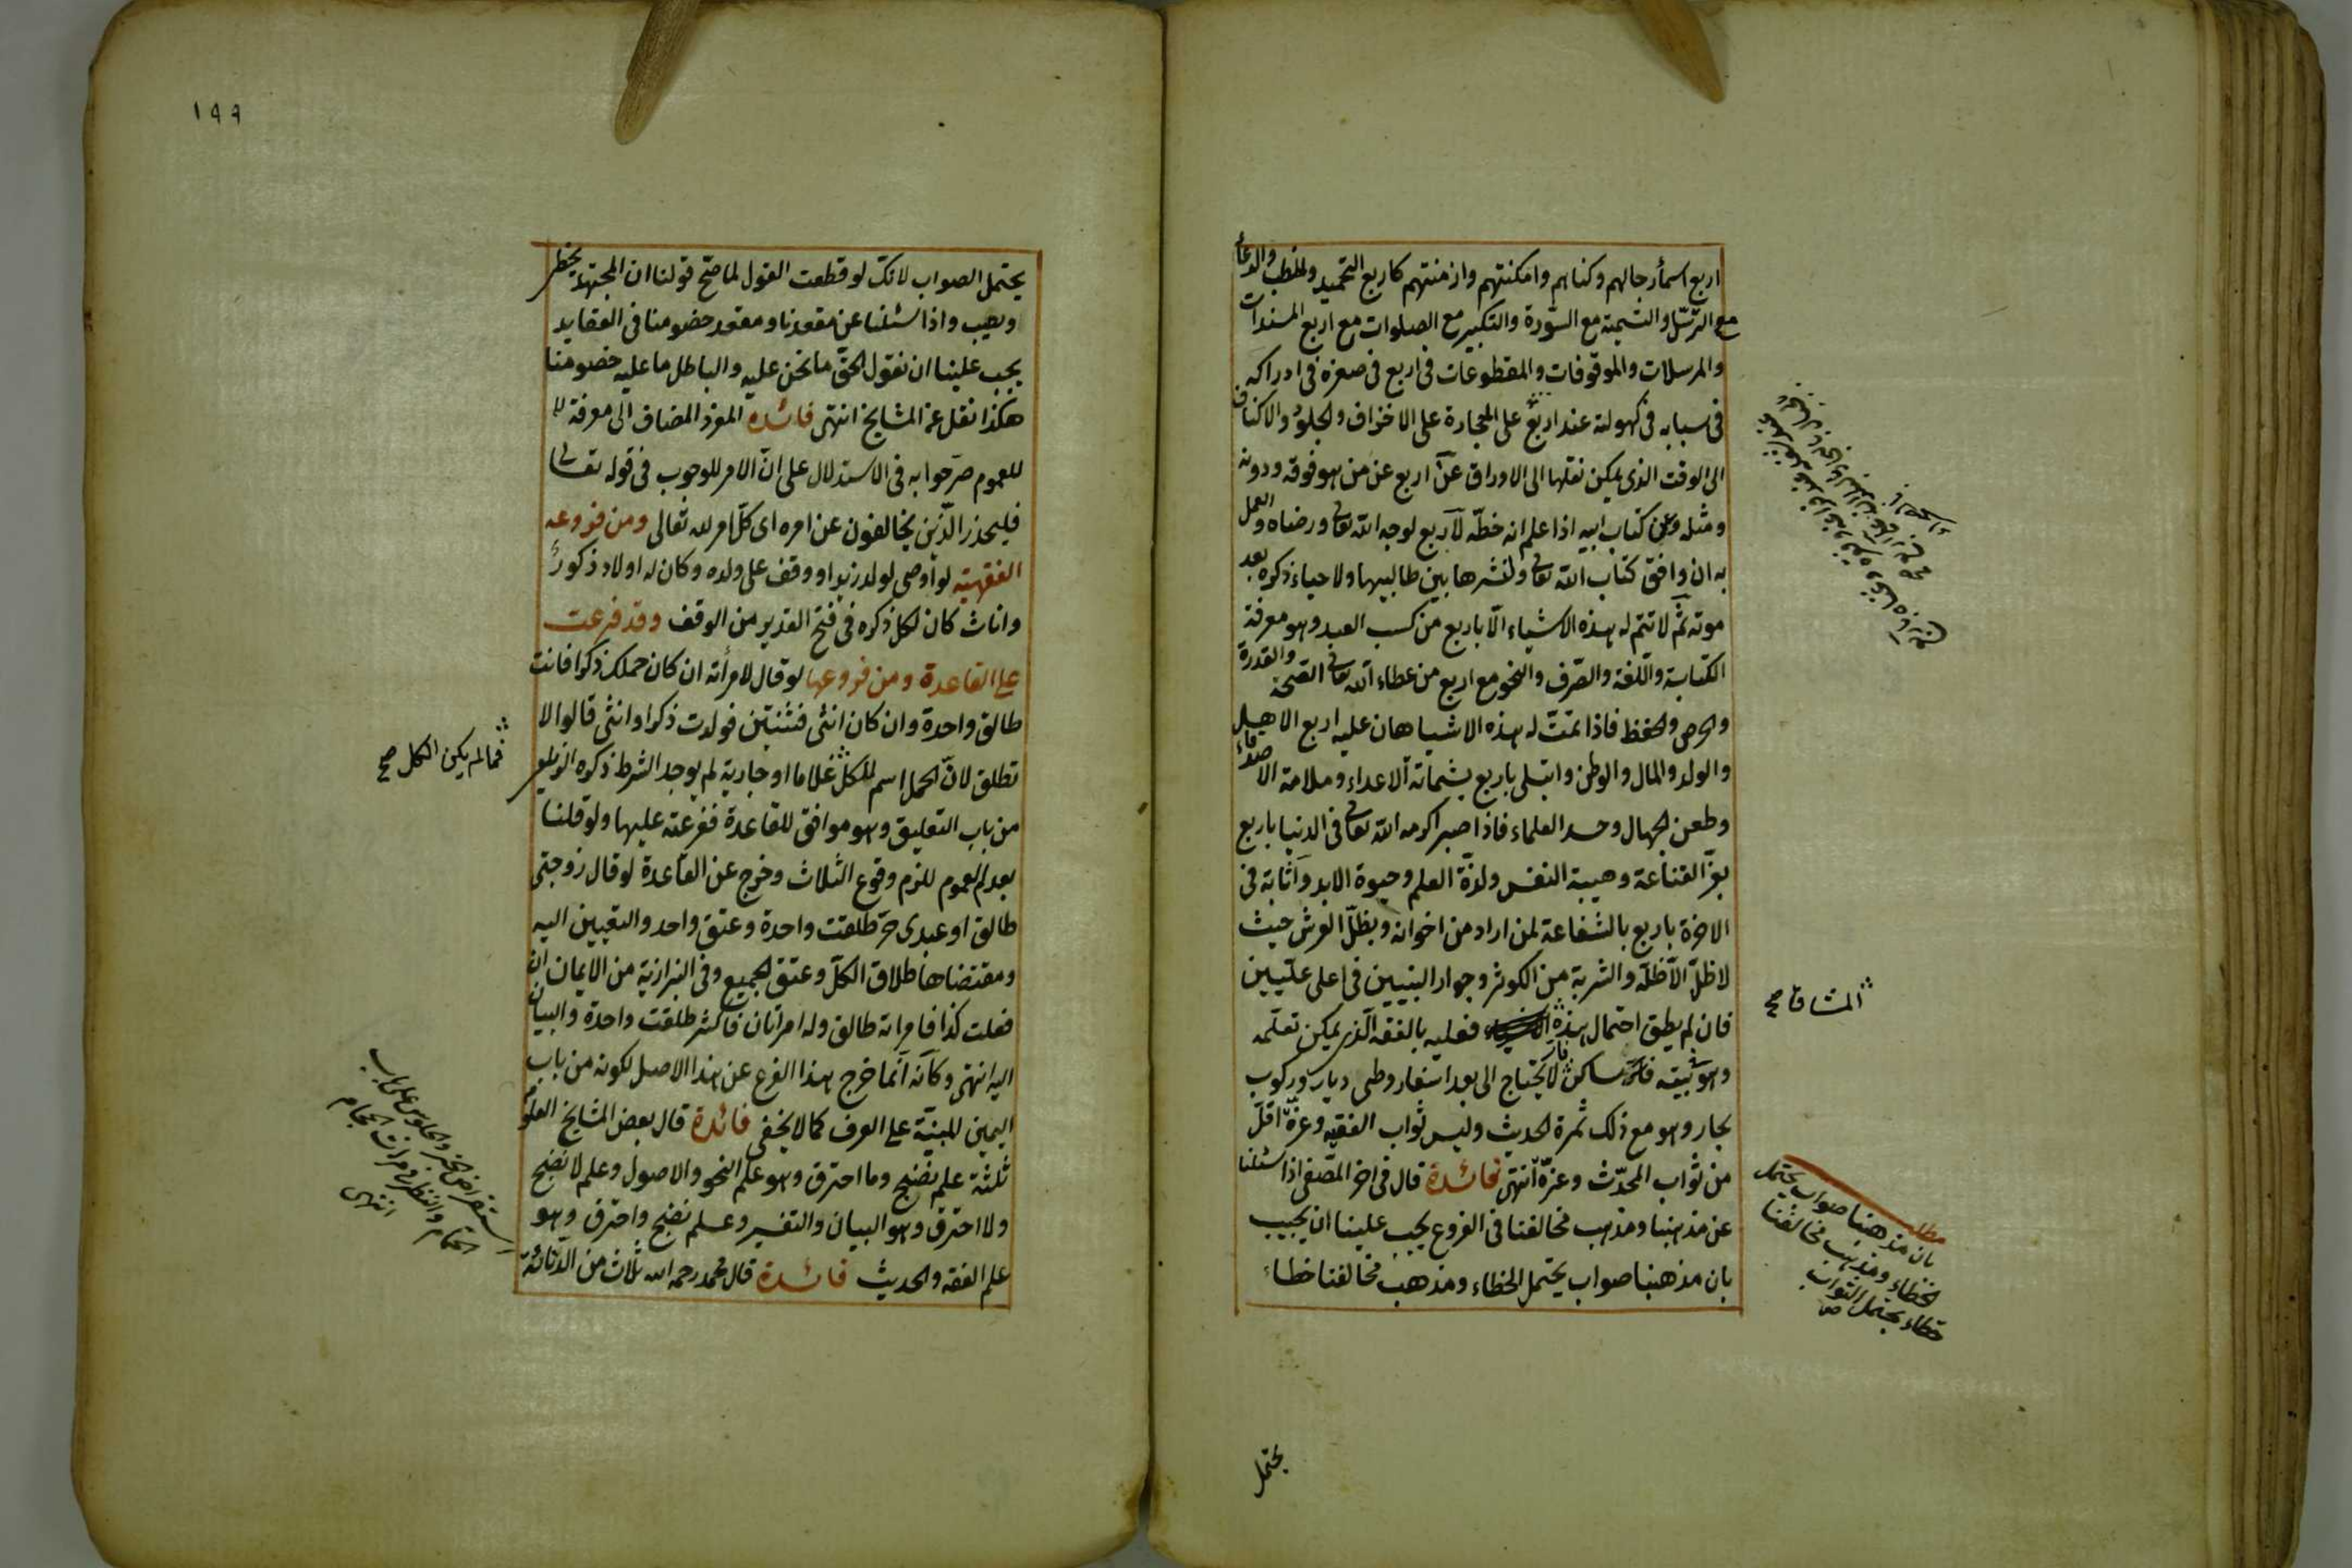 اربع اسمأ رجالهم وكناهم وامكنتهم وازمنتهم كاربع التحميد والخطب والدعأ
مع الترسّل والتسمية مع السّورة والتكبير مع الصلوات مع اربع المسندات
والمرسلات والموقوفات والمقطوعات فى اربع فى صغره فى ادراكه
فى سبابه فى كهولته عند اربع على الحجارة على الاخزاف والجلود والاكتاف
الى الوقت الذى يمكن نقلها الى الاوراق عن اربع عن من هو فوقه ودونه
ومثله وعن كتاب ابيه اذا علم انه خطّه لاربع لوجه الله تعالى ورضاه والعمل
به ان وافق كتاب الله تعالى ولنشرها بين طالبيها ولاحياء ذكره بعد
موته ثم لا تتم له هذه الاشياء الّا باربع من كسب العبد وهو معرفة
الكتابة واللّغة والصّرف والنحو مع اربع من عطاء الله تعالى الصّحة والقدرة
والحرص والحفظ فاذا تمّت له هذه الاشيا هان عليه اربع الاهل
والولد والمال والوطن وابتلى باربع بشماتة الاعداء وملامة الاصدقاء
وطعن الجهال وحسد العلماء فاذا صبر اكرمه الله تعالى فى الدنيا باربع
بعزّ القناعة وهيبة النفس ولذّة العلم وحيوة الابد واثابه فى
الاخرة باربع بالشفاعة لمن اراد من اخوانه وبظلّ العرش حيث
لا ظلّ الّا ظلّه والشربة من الكوثر وجوار النبيين فى اعلى علّيين
فان لم يطق احتمال هذه فعليه بالفقه الّذى يمكن تعلّمه
المشاق صح
وهو فى بيته قارّ ساكن لا يحتاج الى بعد اسفار وطى ديار وركوب
بحار وهو مع ذلك ثمرة الحديث وليس ثواب الفقيه وعزّه اقلّ
من ثواب المحدّث وعزّه انتهى فائدة قال فى اخر المصفى اذا سئلنا
عن مذهبنا ومذهب مخالفنا فى الفروع يجب علينا ان يجيب
بان مذهبنا صواب يحتمل الخطاء ومذهب مخالفنا خطاء
مطلب
بان مذهبنا صواب يحتمل
الخطاء ومذهب مخالفنا
خطاء يحتمل الثواب
يحتمل
١٩٩
يحتمل الصواب لانك لو قطعت القول لما صحّ قولنا ان المجتهد يخطئ
ويصيب واذا سئلنا عن معتقدنا ومعتقد خصومنا فى العقايد
يجب علينا ان نقول الحقّ ما نحن عليه والباطل ما عليه خصومنا
هكذا نقل عن المشايخ انتهى فائده المفرد المضاف الى معرفة
للعموم صرّحوا به فى الاستدلال على انّ الامر للوجوب فى قوله تعالى
فليحذر الّذين يخالفون عن امره اى كلّ امر لله تعالى ومن فروعه
الفقهية لو اوصى لولد زيد او وقف على ولده وكان له اولاد ذكورٌ
واناث كان لكل ذكره فى فتح القدير من الوقف وقد فرعت
على القاعدة ومن فروعها لو قال لامرأته ان كان حملك ذكرا فانت
طالق واحدة وان كان انثى فثنتين فولدت ذكرا وانثى قالوا لا
تطلق لانّ الحمل اسم للكلّ غلاما او جارية لم يوجد الشرط ذكره الزيلعى
فما لم يكن الكل صح
من باب التعليق وهو موافق للقاعدة ففرعته عليها ولو قلنا
بعدم العموم للزم وقوع الثلاث وخرج عن القاعدة لو قال زوجتى
طالق او عبدى حرّ طلقت واحدة وعتق واحد والتعيين اليه
ومقتضاها طلاق الكلّ وعتق الجميع وفى البزازية من الايمان ان
فعلت كذا فامراته طالق وله امراتان فاكثر طلقت واحدة والبيان
اليه انتهى وكأنّه انّما خرج هذا الفرع عن هذا الاصل لكونه من باب
اليمين المبنيّة على العرف كما لا يخفى فائدة قال بعض المشايخ العلوم
ثلثة علم نضج وما احترق وهو علم النحو والاصول وعلم لا نضج
ولا احترق وهو البيان والتفسير وعلم نضج واحترق وهو
علم الفقه والحديث فائدة قال محمد رحمه الله ثلاث من الدّنائة
استقراض الخبز والجلوس على باب
الحمّام والنظر فى مرات الحجام
انتهى